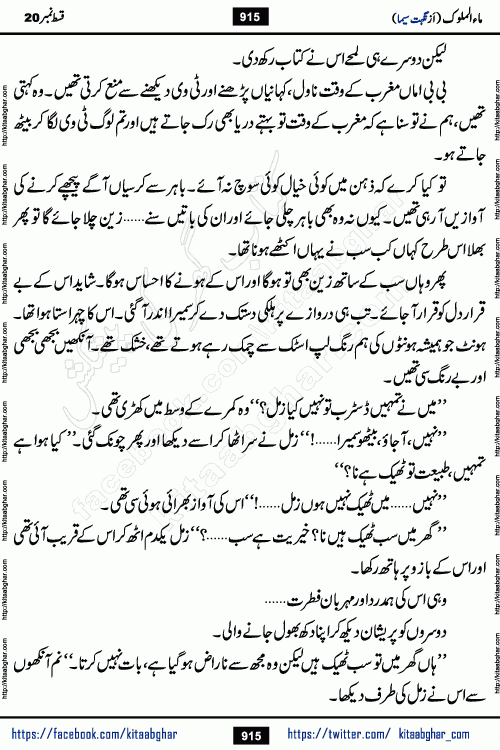 ماء الملوک (از نگہت سیما) 915 قسط نمبر 20
لیکن دوسرے ہی لمحے اس نے کتاب رکھ دی۔
بی بی اماں مغرب کے وقت ناول، کہانیاں پڑھنے اور ٹی وی دیکھنے سے منع کرتی تھیں۔ وہ کہتی
تھیں، ہم نے تو سنا ہے کہ مغرب کے وقت تو بہتے دریا بھی رک جاتے ہیں اور تم لوگ ٹی وی لگا کر بیٹھ
جاتے ہو۔
تو کیا کرے کہ ذہن میں کوئی خیال کوئی سوچ نہ آئے۔ باہر سے کرسیاں آگے پیچھے کرنے کی
آوازیں آ رہی تھیں۔ کیوں نہ وہ بھی باہر چلی جائے اور ان کی باتیں سنے......زین چلا جائے گا تو پھر
بھلا اس طرح کہاں کب سب نے یہاں اکٹھے ہونا تھا۔
پھر وہاں سب کے ساتھ زین بھی تو ہوگا اور اس کے ہونے کا احساس ہوگا۔ شاید اس کے بے
قرار دل کو قرار آ جائے۔ تب ہی دروازے پر ہلکی دستک دے کر سمیرا اندر آ گئی۔ اس کا چہرا ستا ہوا تھا۔
ہونٹ جو ہمیشہ ہونٹوں کی ہم رنگ لپ اسٹک سے چمک رہے ہوتے تھے، خشک تھے۔ آنکھیں بجھی بجھی
اور بے رنگ سی تھیں۔
’’میں نے تمہیں ڈسٹرب تو نہیں کیا زمل؟‘‘ وہ کمرے کے وسط میں کھڑی تھی۔
’’نہیں، آ جاؤ، بیٹھو سمیرا......!‘‘ زمل نے سر اٹھا کر اسے دیکھا اور پھر چونک گئی۔ ’’کیا ہوا ہے
تمہیں، طبیعت تو ٹھیک ہے نا؟‘‘
’’نہیں...... میں ٹھیک نہیں ہوں زمل......!‘‘ اس کی آواز بھرائی ہوئی سی تھی۔
’’گھر میں سب ٹھیک ہیں نا؟ خیریت ہے سب......؟‘‘ زمل یکدم اٹھ کر اس کے قریب آئی تھی
اور اس کے بازو پر ہاتھ رکھا۔
وہی اس کی ہمدرد اور مہربان فطرت......
دوسروں کو پریشان دیکھ کر اپنا دکھ بھول جانے والی۔
’’ہاں گھر میں تو سب ٹھیک ہیں لیکن وہ مجھ سے ناراض ہو گیا ہے، بات نہیں کرتا۔‘‘ نم آنکھوں
سے اس نے زمل کی طرف دیکھا۔
https://facebook.com/kitaabghar 915 https://twitter.com/ kitaabghar_com
http://kitaabghar.com
kitaabghar.com
facebook.com/kitaabghar